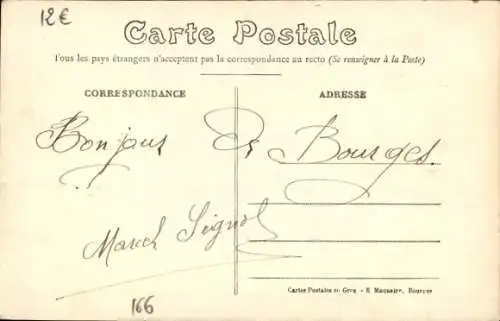 12€
Carte Postale
Tous les pays étrangers n'acceptent pas la correspondance au recto (Se renseigner à la Poste)
CORRESPONDANCE
ADRESSE
Bonjour De Bourges
Marcel
166
Cartes Postales en Gros - E. Maquaire, Bourges